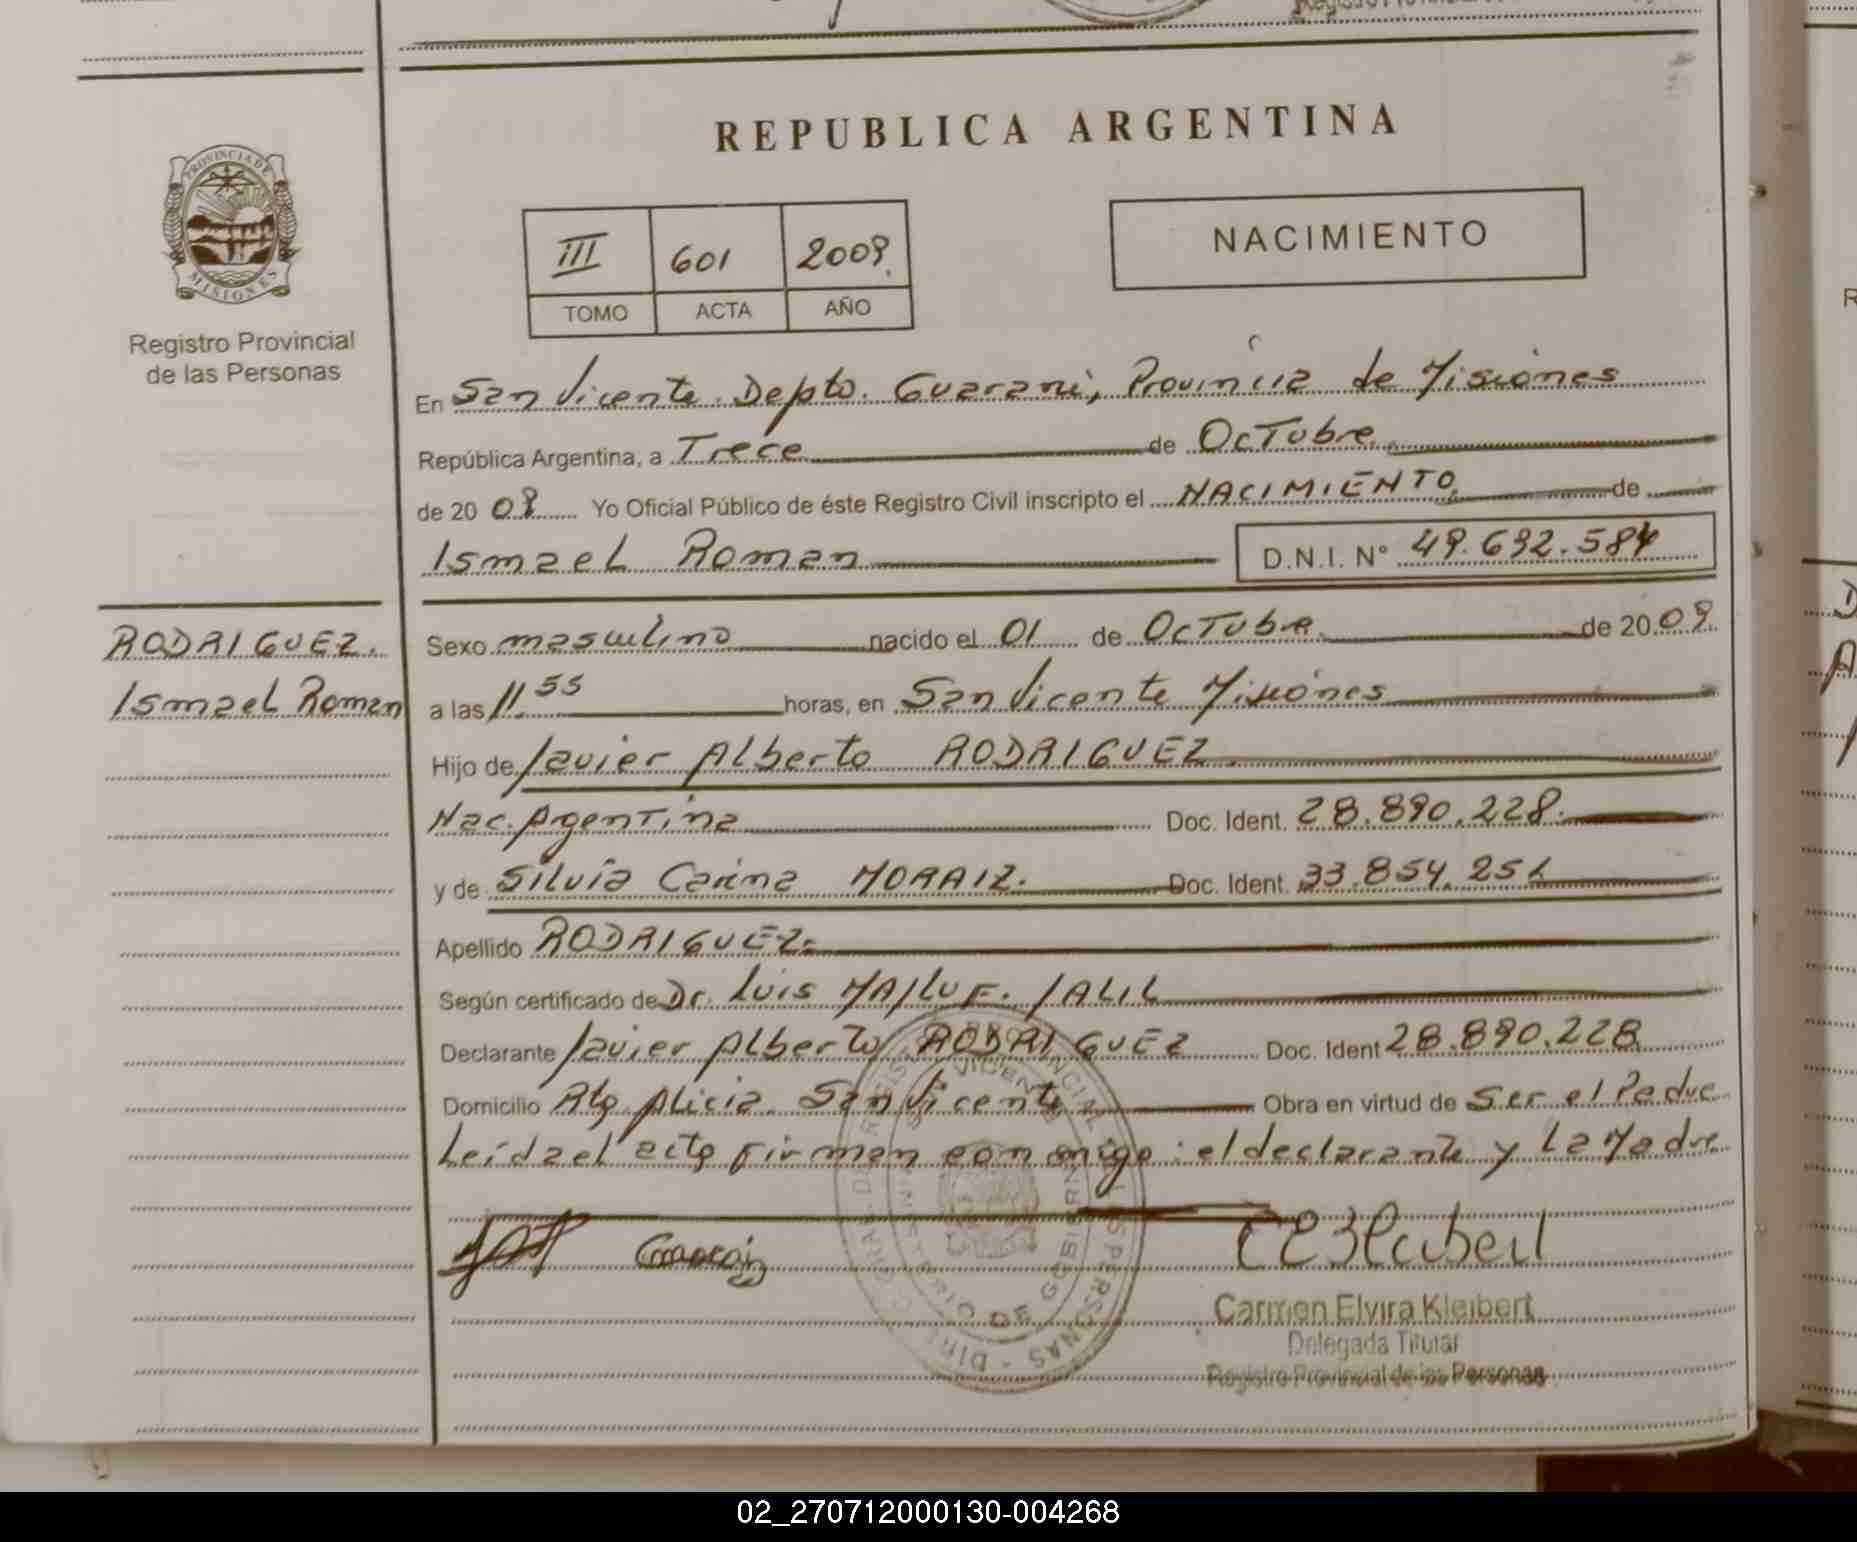 REPUBLICA ARGENTINA
PROVINCIA DE
MISIONES
Registro Provincial
de las Personas
III 601 2009
TOMO ACTA AÑO
NACIMIENTO
En San Vicente. Depto. Guarani, Provincia de Misiones
República Argentina, a Trece de Octubre
de 2009 Yo Oficial Público de éste Registro Civil inscripto el NACIMIENTO de
Ismael Roman D.N.I. N° 49.692.584
RODRIGUEZ.
Ismael Roman
Sexo masculino nacido el 01 de Octubre de 2009.
a las 11.55 horas, en San Vicente Misiones
Hijo de Javier Alberto RODRIGUEZ
Nac. Agentina Doc. Ident. 28.890.228.
y de Silvia Carina MORAIZ. Doc. Ident. 33.854.251
Apellido RODRIGUEZ.
Según certificado de Dr. Luis JALIL
Declarante Javier Alberto RODRIGUEZ Doc. Ident 28.890.228
Domicilio Alicia San Vicente Obra en virtud de Ser el Padre
Leida el acta Firman conmigo: el declarante y La Madre
Carmen Elvira Kleibert
Delegada Titular
Registro Provincial de las Personas
02_270712000130-004268